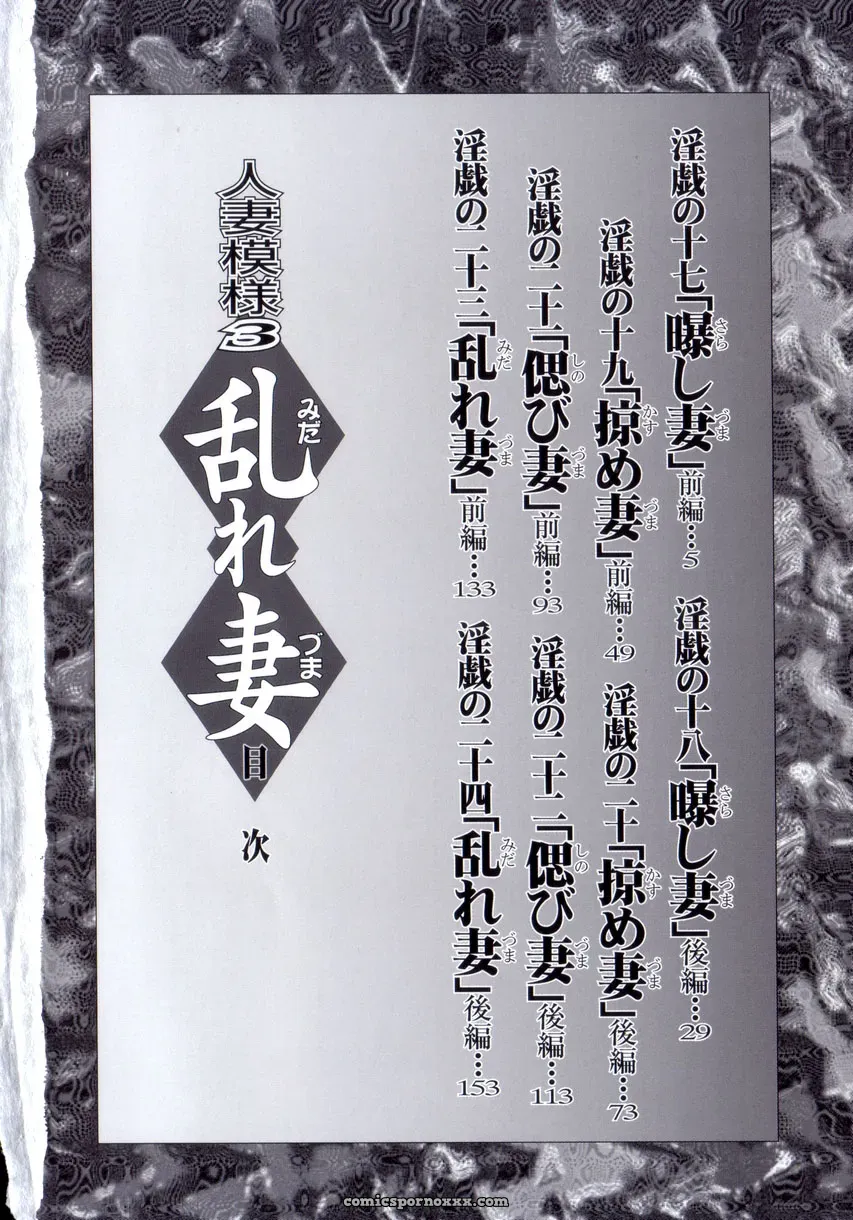 淫戯の十七「曝し妻」前編…5
さら
づま
淫戯の十八「曝し妻」後編…29
さら
づま
淫戯の十九「掠め妻」前編…49
かす
づま
淫戯の二十「掠め妻」後編…73
かす
づま
淫戯の二十一「偲び妻」前編…93
しの
づま
淫戯の二十二「偲び妻」後編…113
しの
づま
淫戯の二十三「乱れ妻」前編…133
みだ
づま
淫戯の二十四「乱れ妻」後編…153
みだ
づま
人妻模様3
乱れ妻
みだ
づま
目次
comicspornoxxx.com